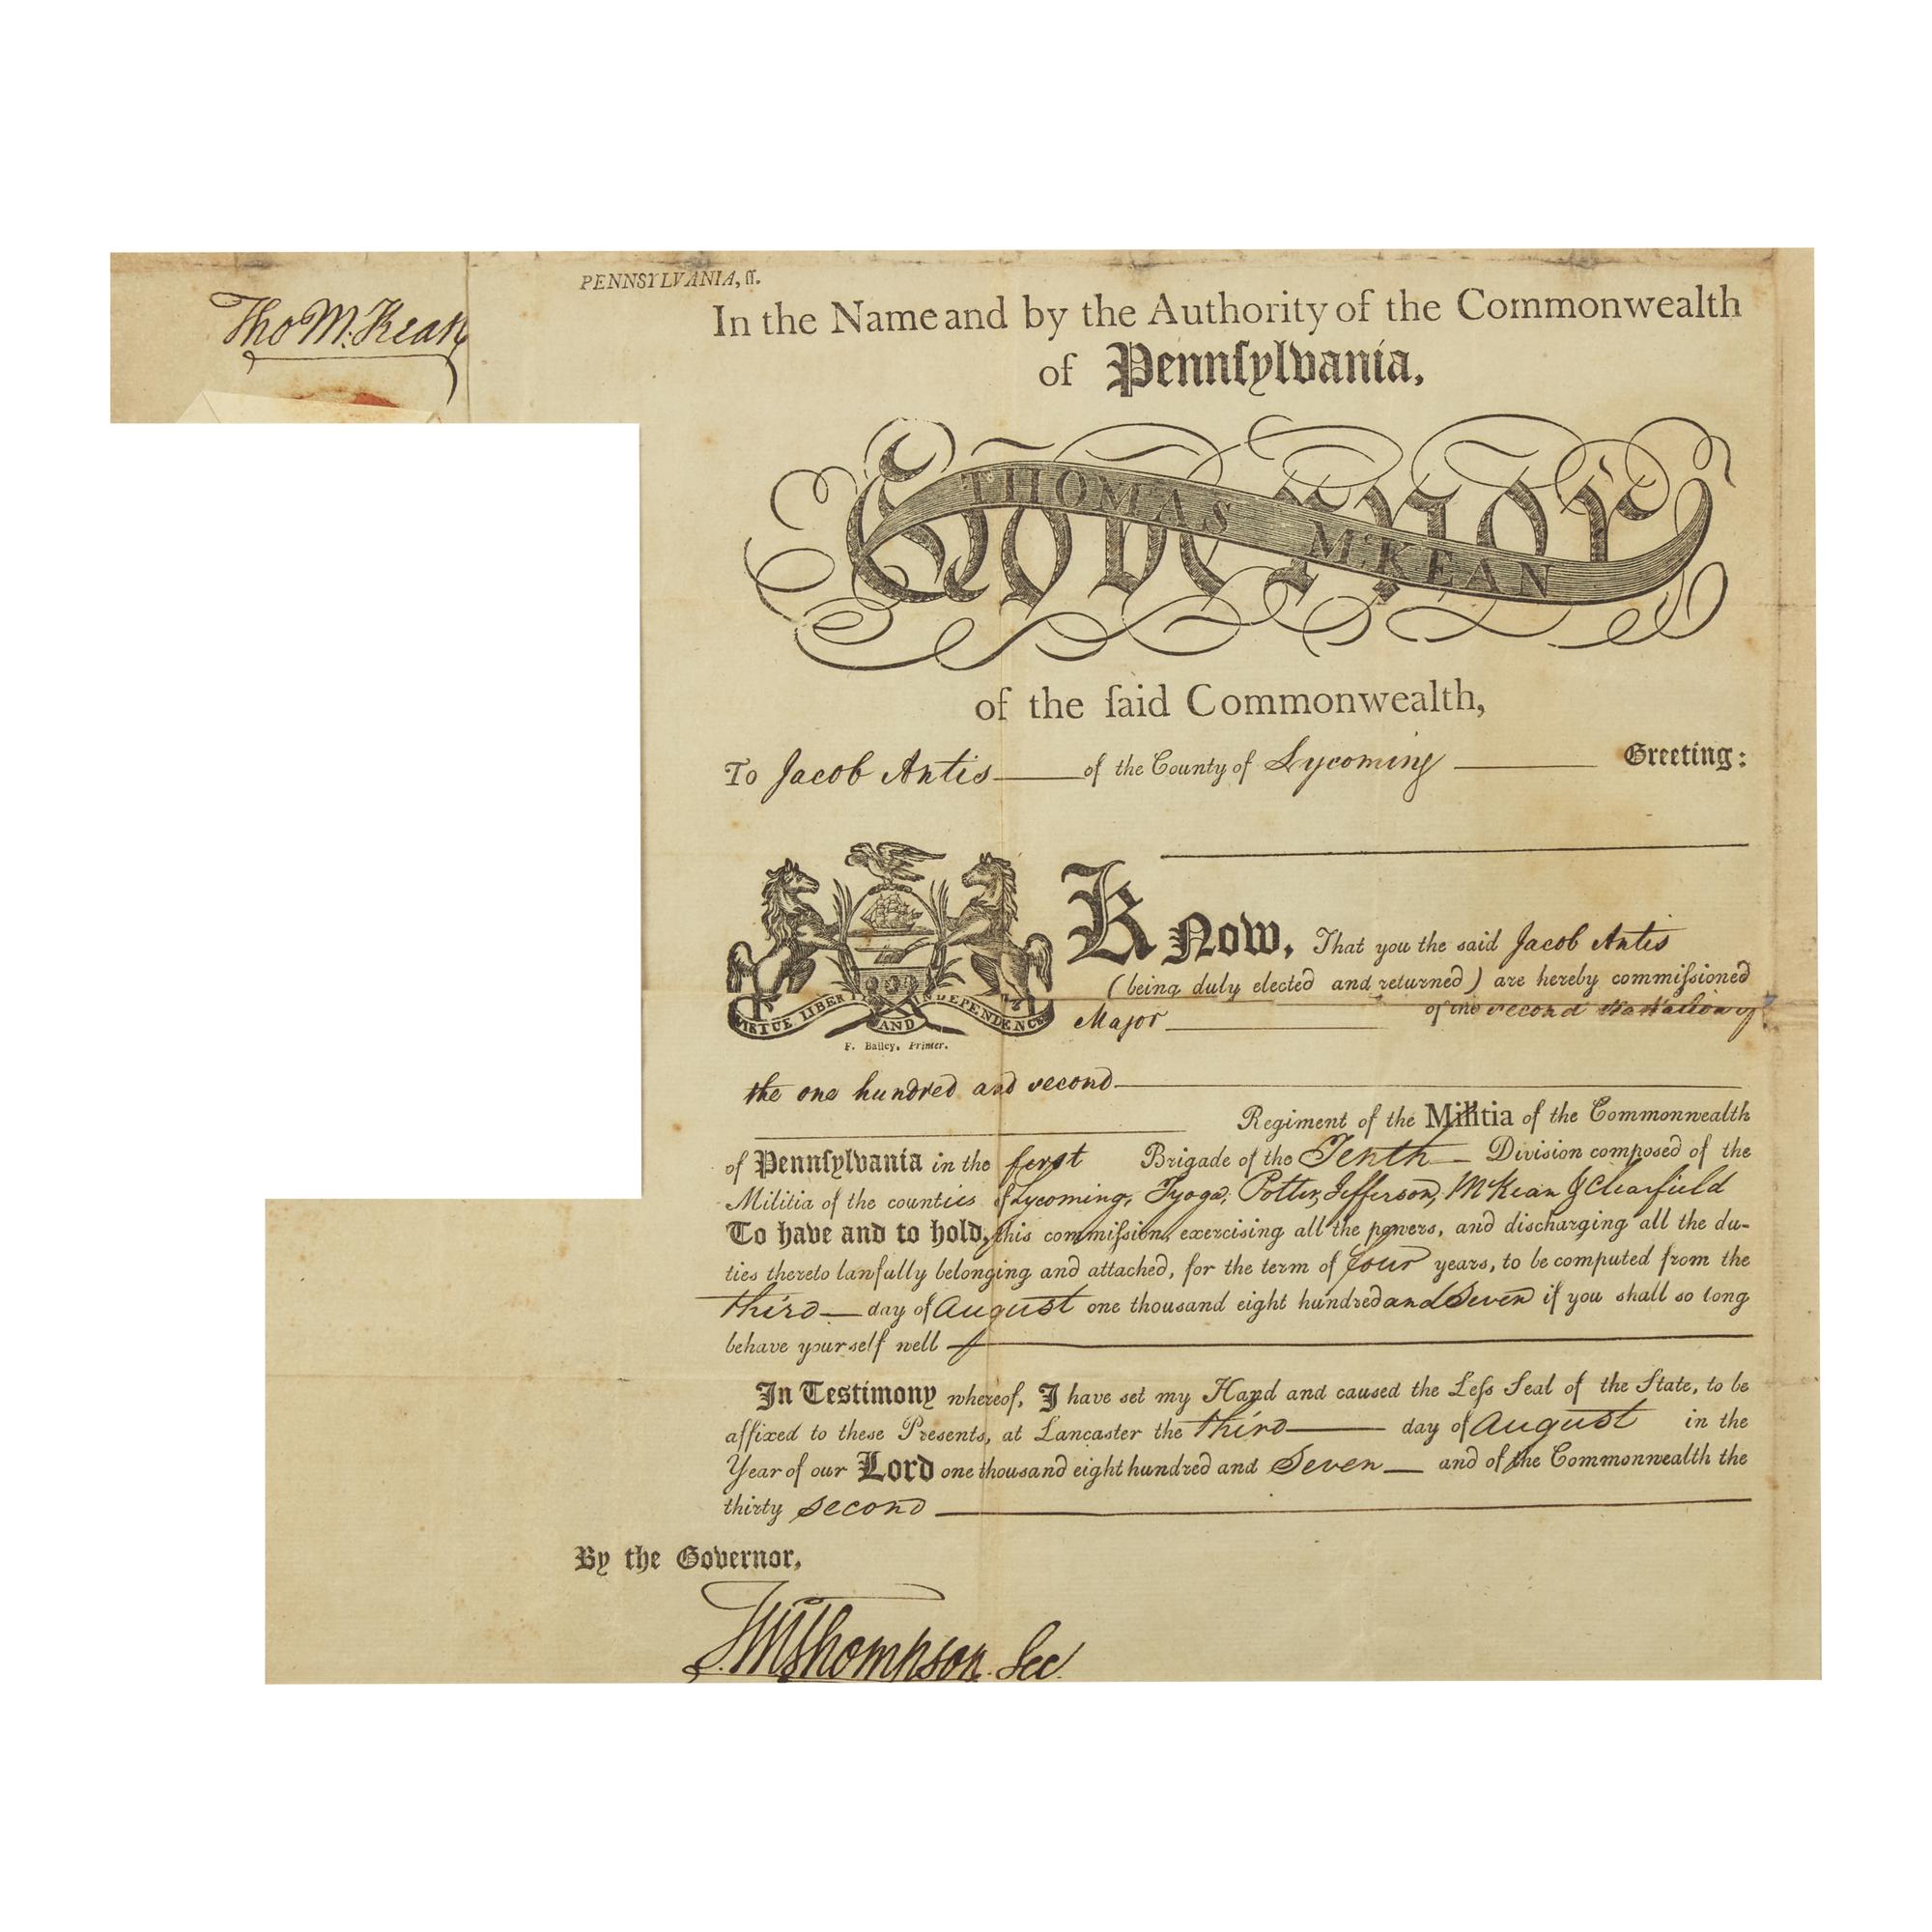 Tho M:Kean
PENNSYLVANIA, ſſ.
In the Name and by the Authority of the Commonwealth
of Pennſylvania,
Governor
THOMAS M‘KEAN
of the ſaid Commonwealth,
To Jacob Antis of the County of Lycoming Greeting:
VIRTUE LIBERTY AND INDEPENDENCE
F. Bailey, Printer.
Know, That you the said Jacob Antis
(being duly elected and returned) are hereby commiſsioned
Major of the second Battalion of
the one hundred and second
Regiment of the Militia of the Commonwealth
of Pennſylvania in the first Brigade of the Tenth Division composed of the
Militia of the counties of Lycoming, Tyoga, Potter, Jefferson, McKean & Clearfield
To have and to hold, this commiſsion, exercising all the powers, and discharging all the du-
ties thereto lawfully belonging and attached, for the term of four years, to be computed from the
third day of August one thousand eight hundred and Seven if you shall so long
behave yourself well
In Testimony whereof, I have set my Hand and caused the Leſs Seal of the State, to be
affixed to these Presents, at Lancaster the third day of August in the
Year of our Lord one thousand eight hundred and Seven and of the Commonwealth the
thirty second
By the Governor,
T M Thompson Sec.